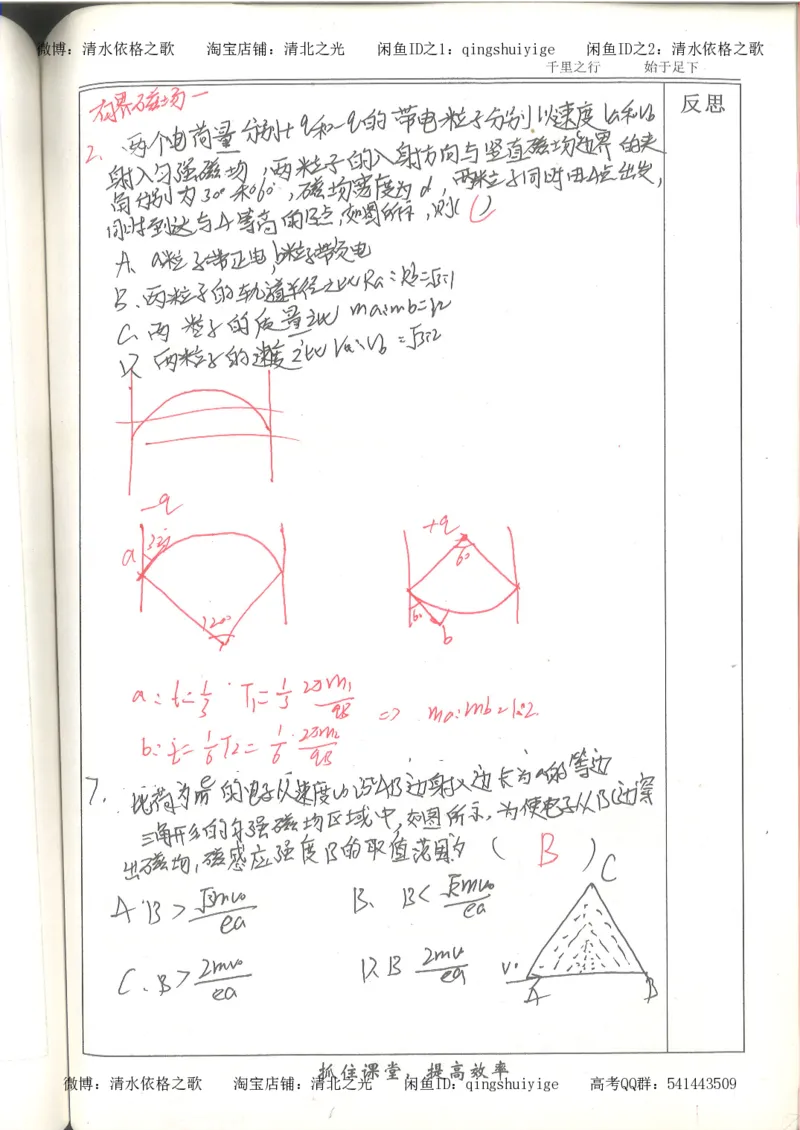 微博：清水依格之歌 淘宝店铺：清北之光 闲鱼ID之1：qingshuiyige 闲鱼ID之2：清水依格之歌
千里之行 始于足下
反思
有界磁场一
2. 两个电荷量分别+q和-q的带电粒子分别以速度Va和Vb
射入匀强磁场，两粒子的入射方向与竖直磁场边界的夹
角分别为30°和60°，磁场宽度为d，两粒子同时由A点出发，
同时到达与A等高的B点，如图所示，则( C )
A. a粒子带正电，b粒子带负电
B. 两粒子的轨道半径之比Ra：Rb=√3:1
C. 两粒子的质量之比 ma:mb=1:2
D. 两粒子的速度之比 Va：Vb =√3:2
-q
+q
a
30°
60
120
60
b
a: t=1/3 · T1=1/3 2πm1/qB
=> ma:mb=1:2
b: t=1/6 T2=1/6 · 2πm2/qB
7. 比荷为e/m的电子以速度v0沿AB边射入边长为a的等边
三角形的匀强磁场区域中，如图所示，为使电子从BC边穿
出磁场，磁感应强度B的取值范围为 ( B )
A. B > √3mv0/ea
B. B < √3mv0/ea
C
C. B > 2mv0/ea
D. B 2mv/ea
V0
A
B
抓住课堂，提高效率
微博：清水依格之歌 淘宝店铺：清北之光 闲鱼ID：qingshuiyige 高考QQ群：541443509